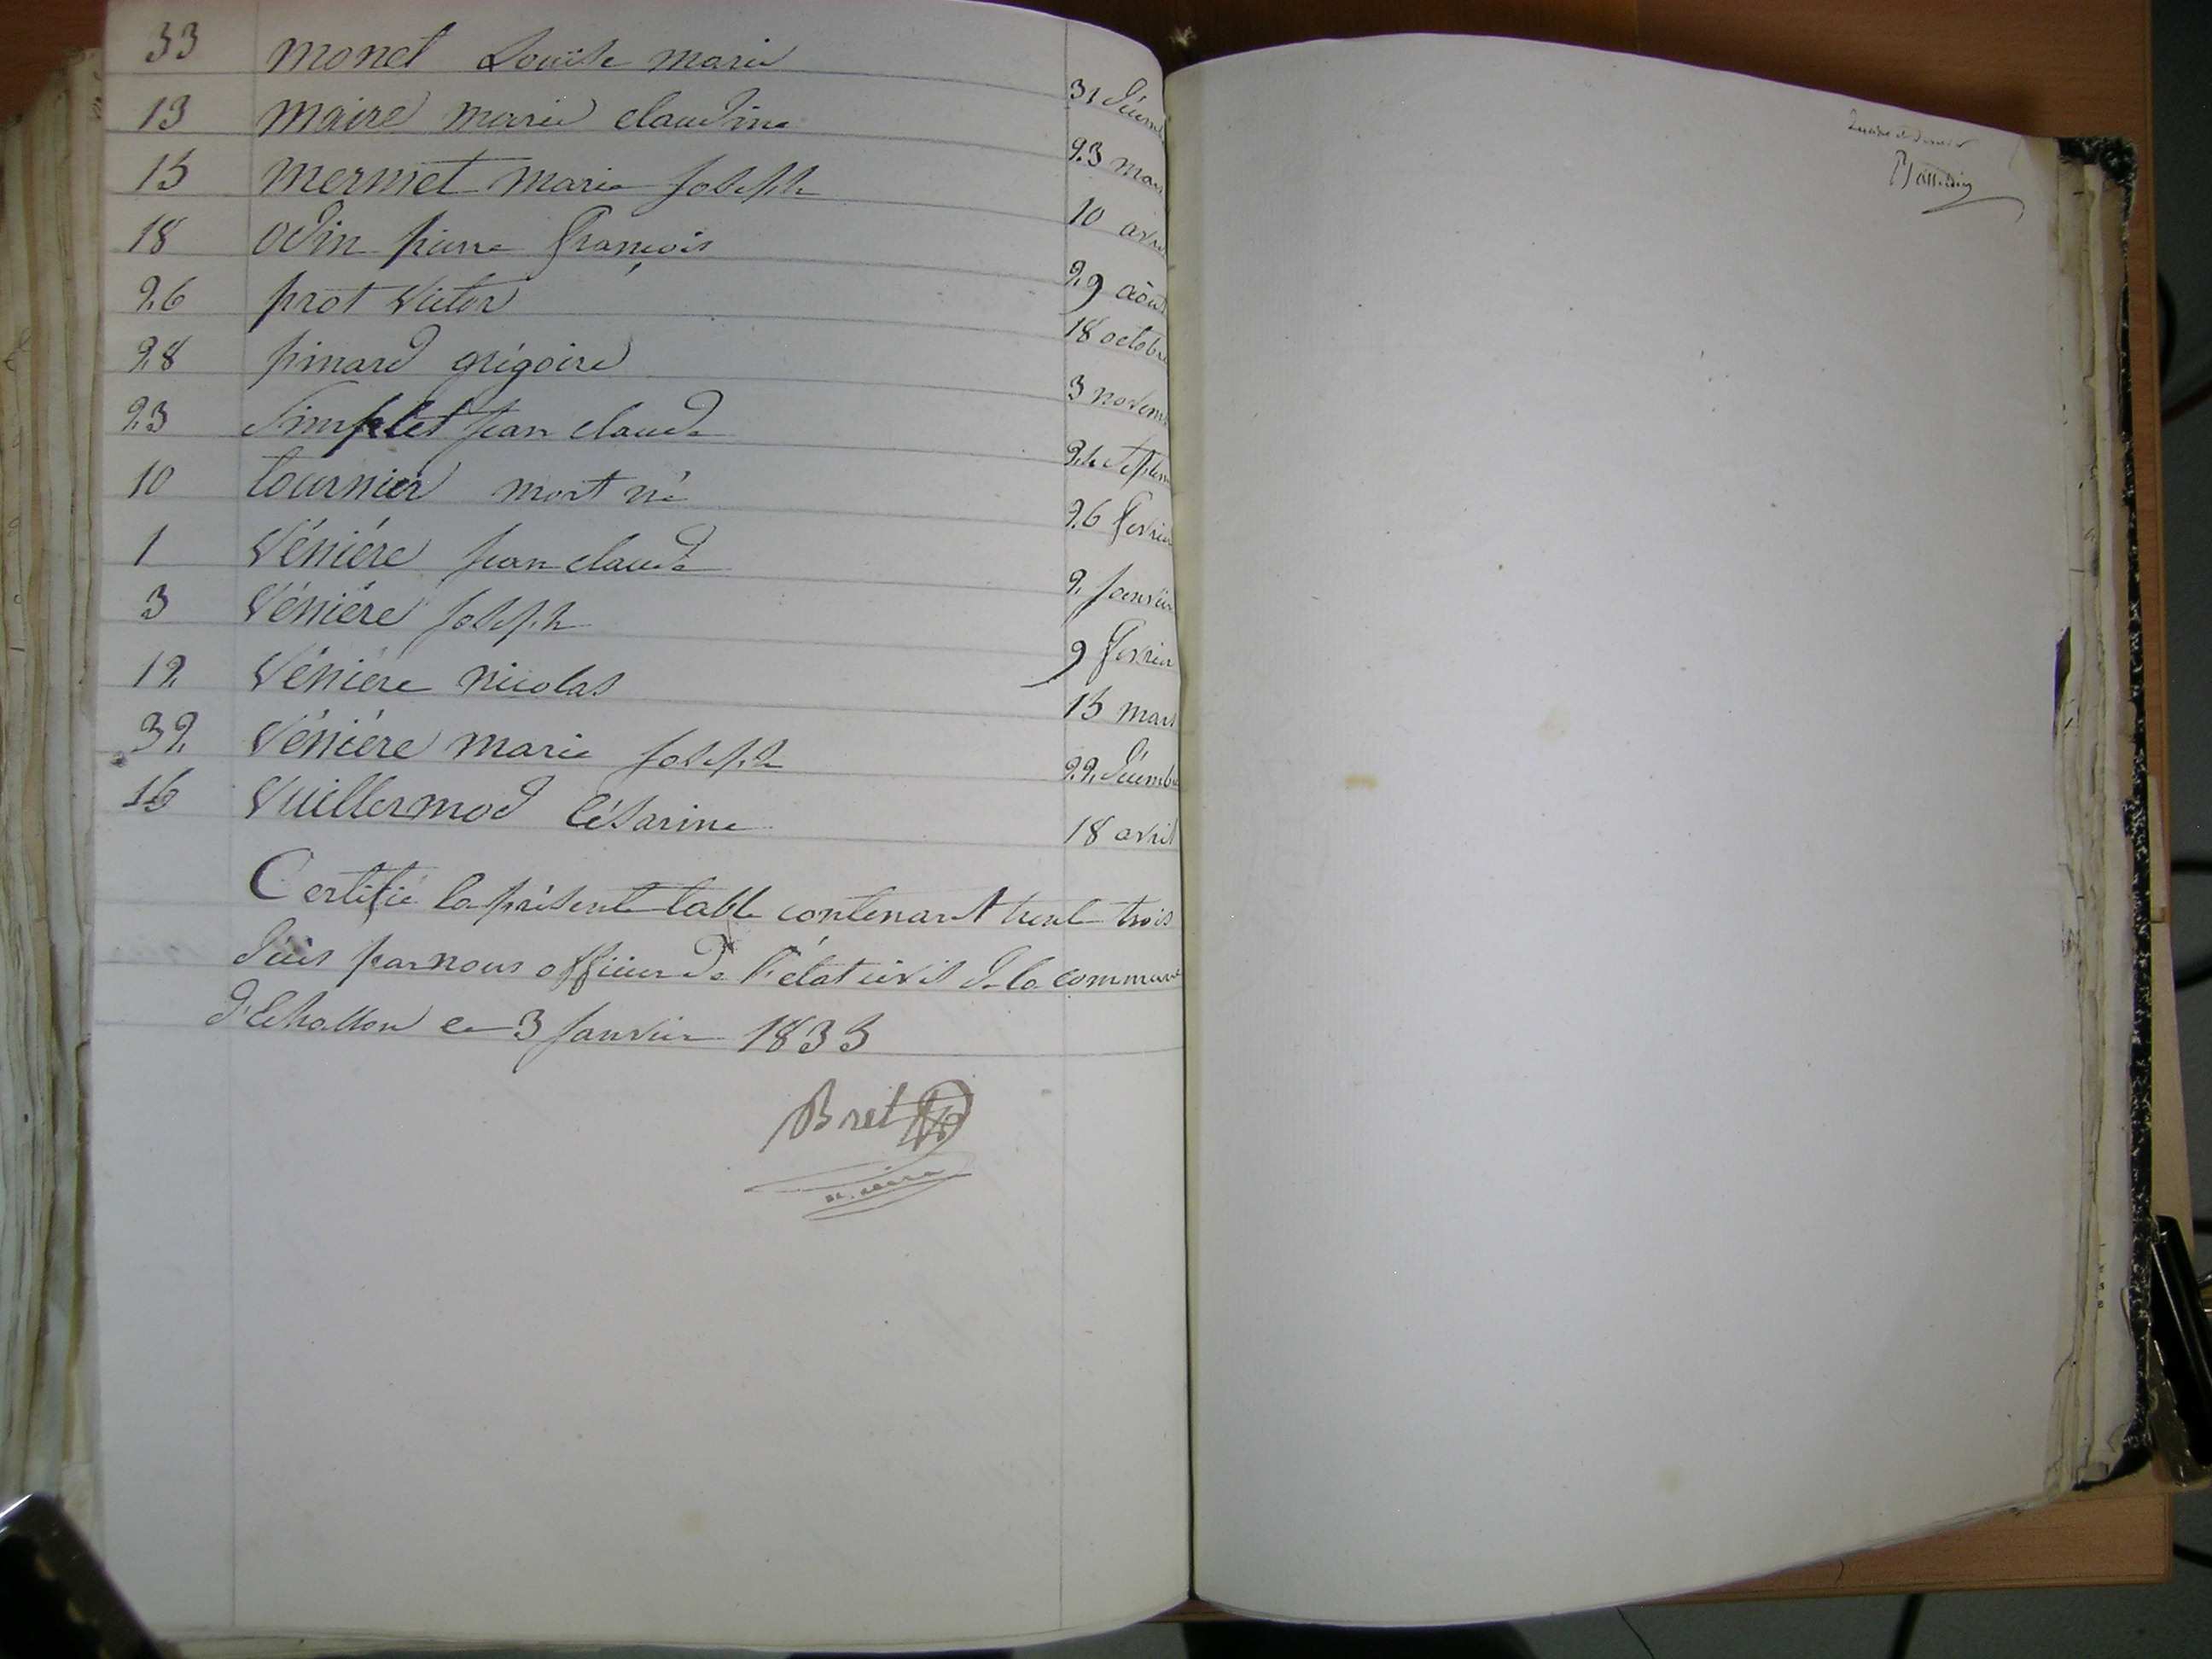 33 monet Louise marie 31 décemb
13 maire marie claudine 23 mars
15 mermet marie Joseph 10 avril
18 odin pierre françois 29 août
26 prot Victor 18 octobre
28 pinard grégoire 3 novemb
23 Simplet jean claude 24 Septem
10 tournier mort né 26 fevrier
1 Véniére jean claude 2 janvier
3 Véniére Joseph 9 fevrier
12 Véniére nicolas 15 mars
32 Véniére marie Joseph 22 décembre
16 Vuillermod Césarine 18 avril
Certifié la présente table contenant trente trois
décès par nous officier de l'état civil de la commune
d'Echallon le 3 janvier 1835
Bret